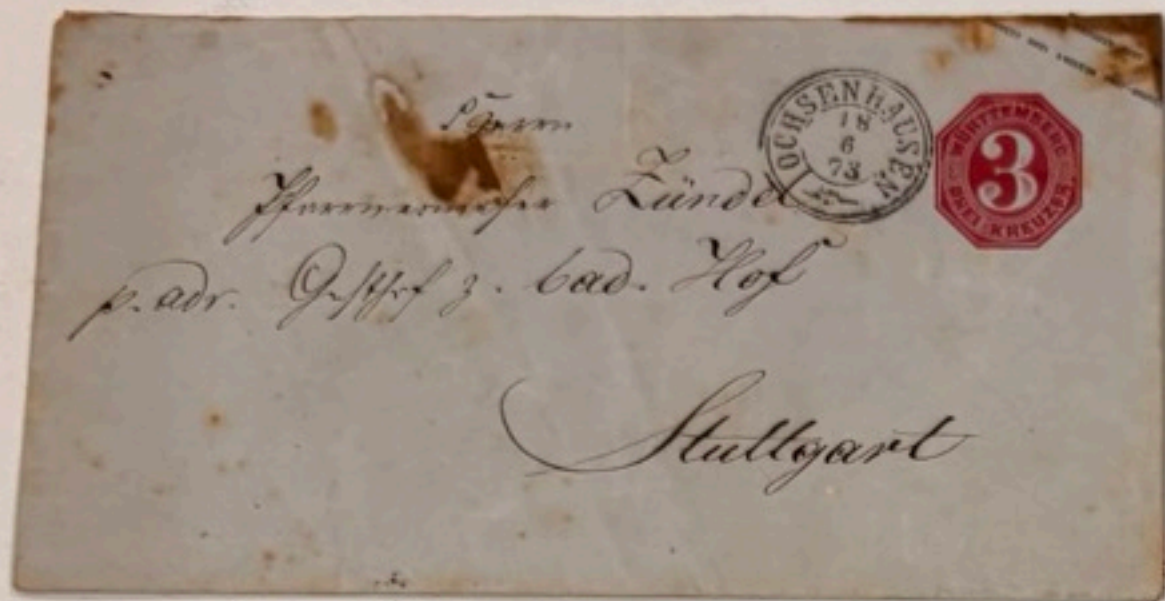 Herrn
Pfarrverweser Zündel
p. adr. Gasthof z. bad. Hof
Stuttgart
OCHSENHAUSEN
18
6
73
WÜRTTEMBERG
3
DREI KREUZER